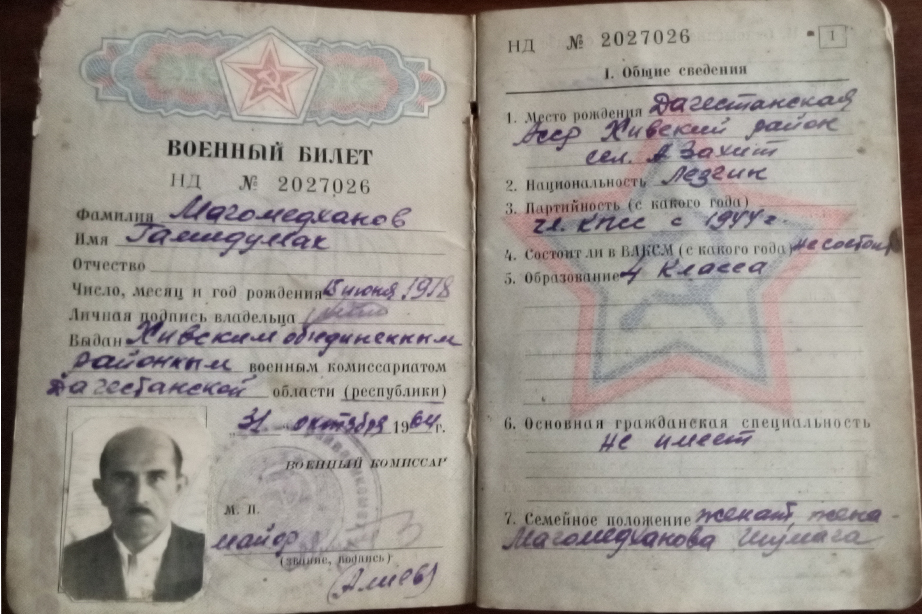 ВОЕННЫЙ БИЛЕТ
НД № 2027026
Фамилия Магомедханов
Имя
Отчество
Число, месяц и год рождения 15 июня 1918
Личная подпись владельца
Выдан Хивским объединенным
районным военным комиссариатом
Дагестанской области (республики)
„31 октября 1964 г.
ВОЕННЫЙ КОМИССАР
М. П.
майор
(звание, подпись)
(Алиев)
НД № 2027026
1
1. Общие сведения
1. Место рождения Дагестанская
Асср Хивский район
сел. А Захит
2. Национальность Лезгин
3. Партийность (с какого года)
чл. КПСС с 1944 г.
4. Состоит ли в ВЛКСМ (с какого года) не состоит
5. Образование 4 класса
6. Основная гражданская специальность
не имеет
7. Семейное положение женат, жена -
Магомедханова